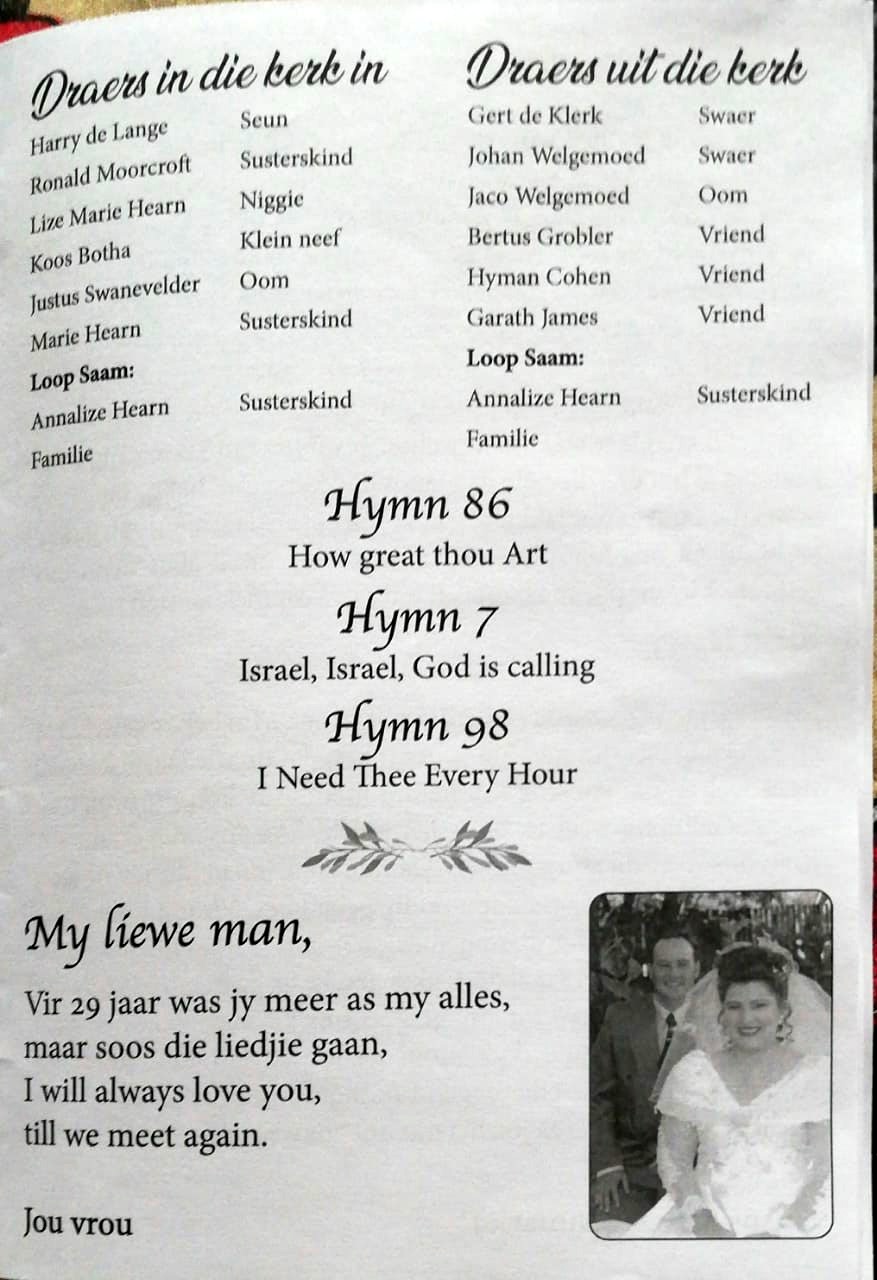 Draers in die kerk in
Harry de Lange Seun
Ronald Moorcroft Susterskind
Lize Marie Hearn Niggie
Koos Botha Klein neef
Justus Swanevelder Oom
Marie Hearn Susterskind
Loop Saam:
Annalize Hearn Susterskind
Familie
Draers uit die kerk
Gert de Klerk Swaer
Johan Welgemoed Swaer
Jaco Welgemoed Oom
Bertus Grobler Vriend
Hyman Cohen Vriend
Garath James Vriend
Loop Saam:
Annalize Hearn Susterskind
Familie
Hymn 86
How great thou Art
Hymn 7
Israel, Israel, God is calling
Hymn 98
I Need Thee Every Hour
My liewe man,
Vir 29 jaar was jy meer as my alles,
maar soos die liedjie gaan,
I will always love you,
till we meet again.
Jou vrou